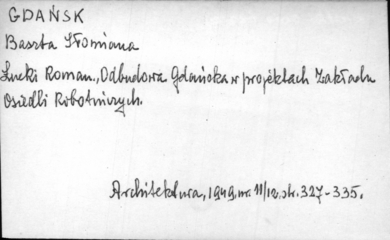 GDAŃSK
Baszta Słomiana
Łucki Roman., Odbudowa Gdańska w projektach Zakładu
Osiedli Robotniczych.
Architektura, 1949, nr. 11/12, str. 327-335.